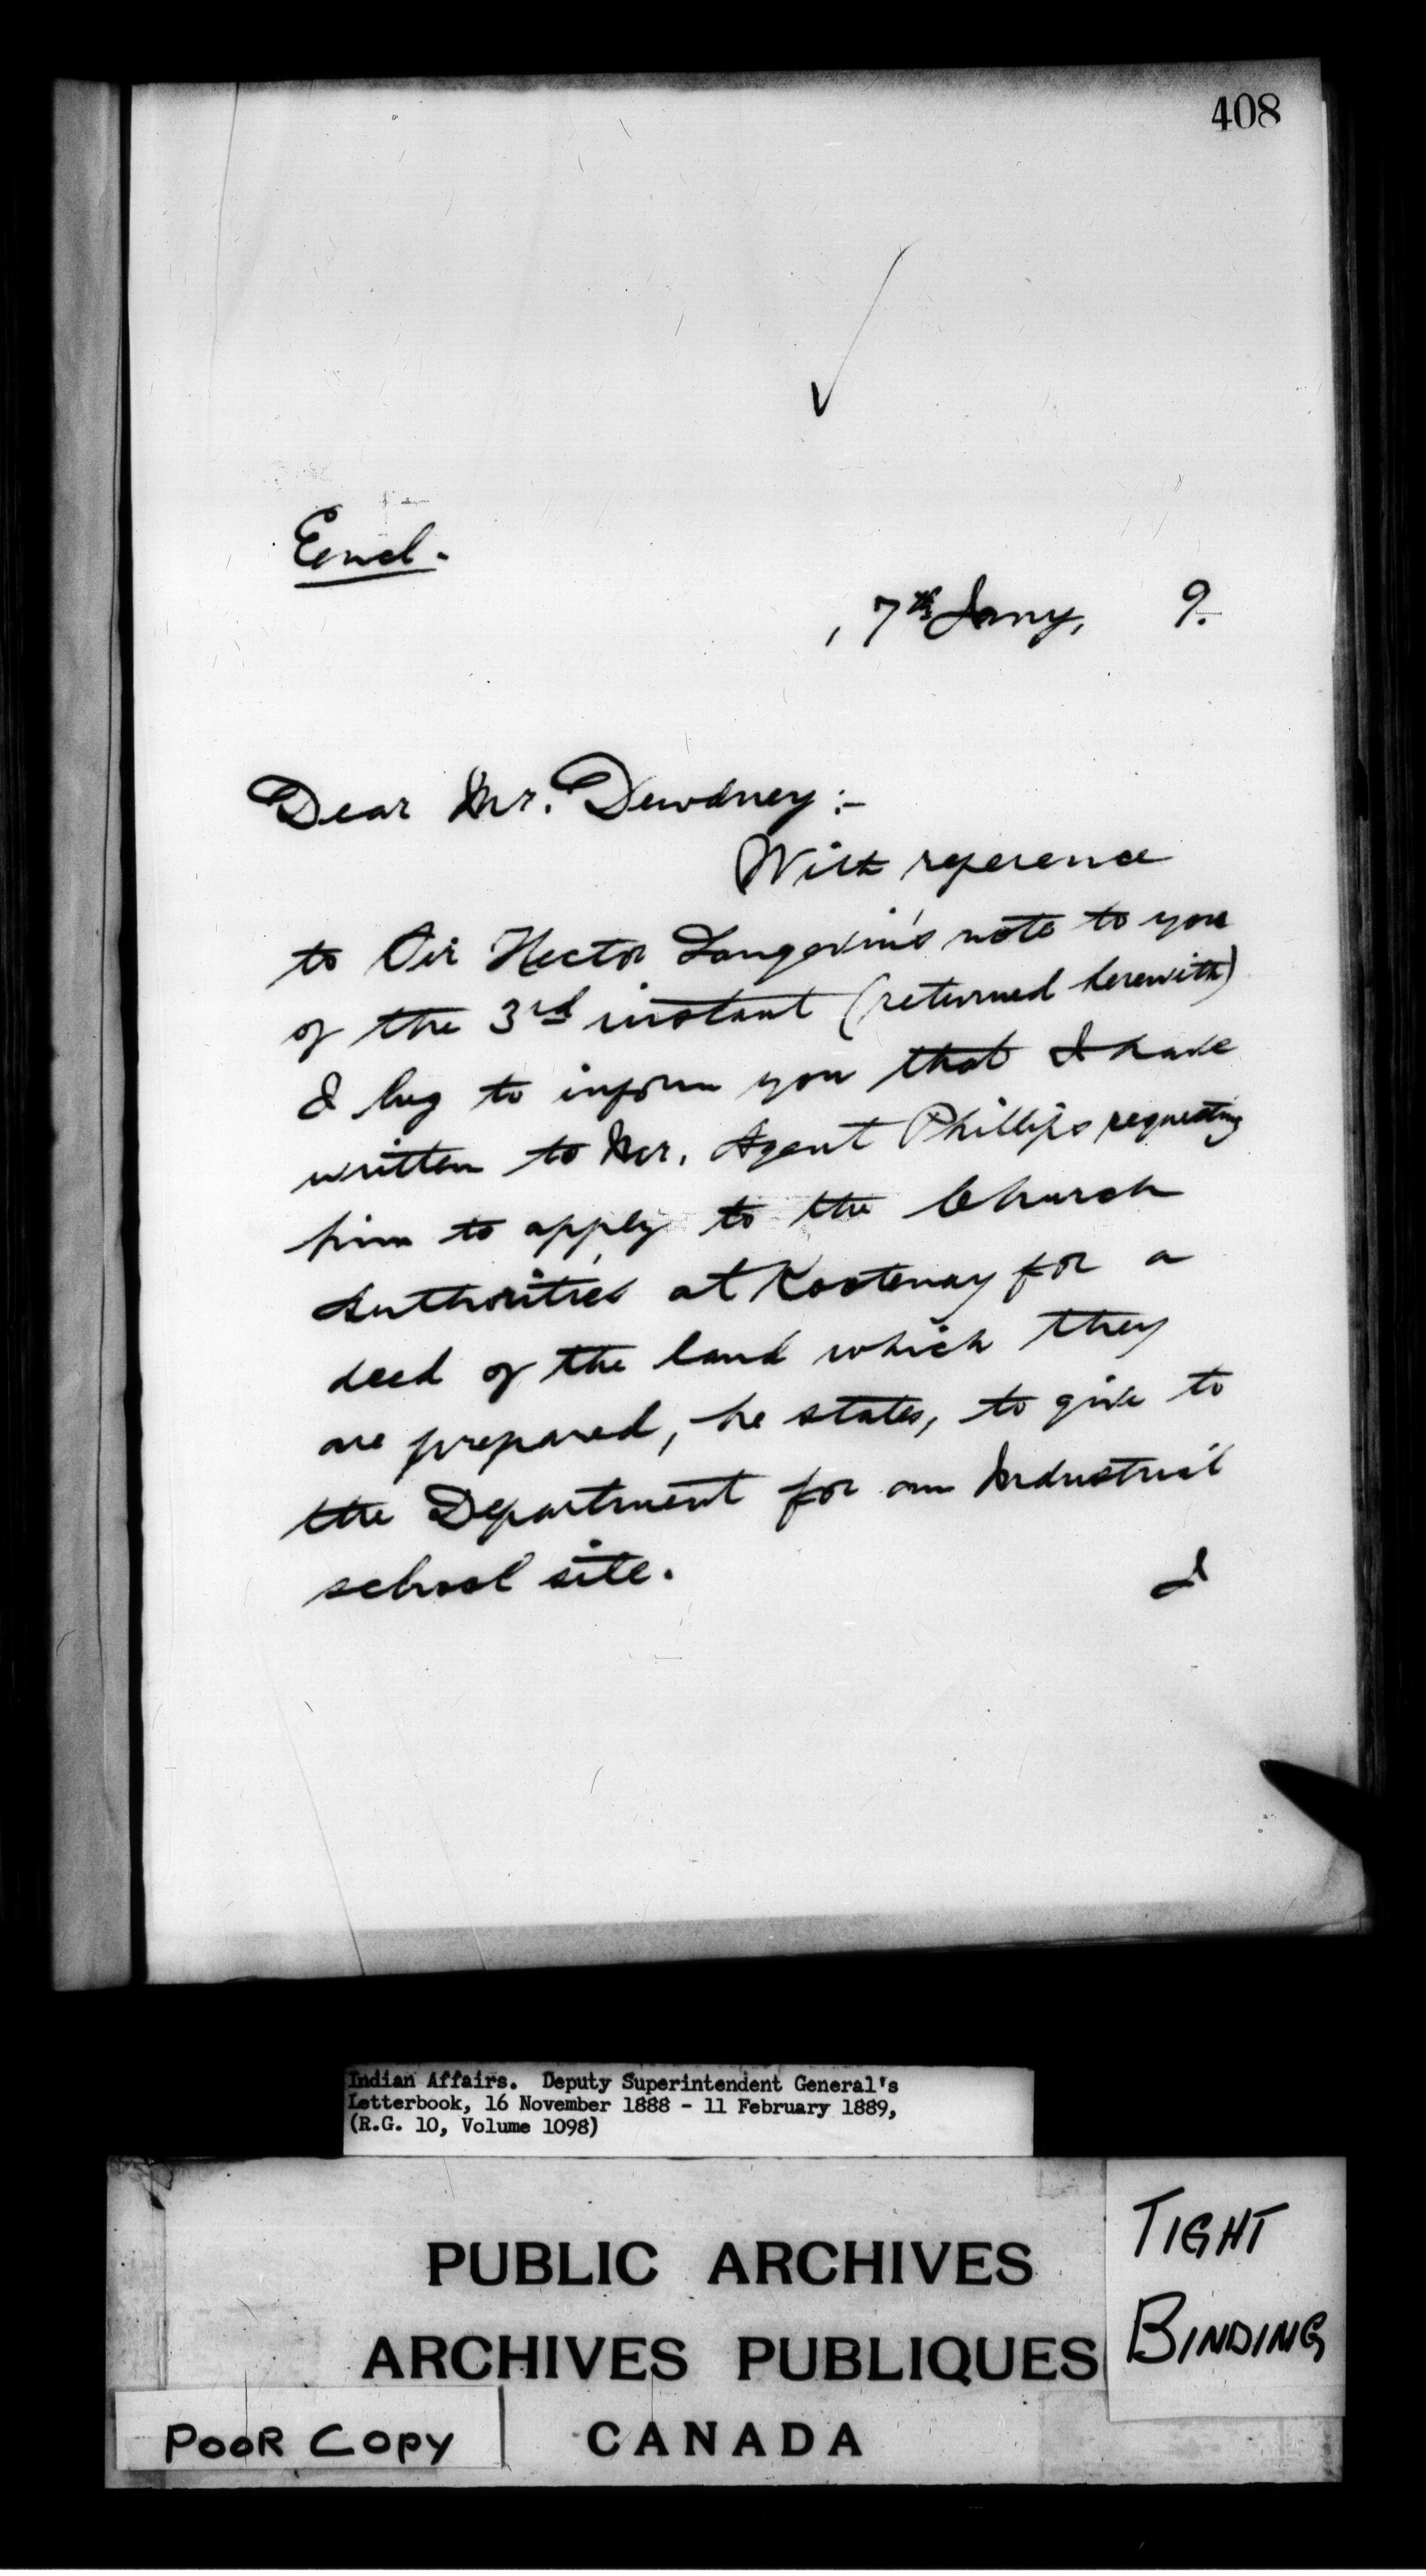 408
Encl.
, 7th Jany, 9.
Dear Mr. Dewdney :-
With reference
to Sir Hector Langevin's note to you
of the 3rd instant (returned herewith)
I beg to inform you that I have
written to Mr. Agent Phillipps requesting
him to apply to the Church
Authorities at Kootenay for a
deed of the land which they
are prepared, he states, to give to
the Department for an Industrial
school site.
I
Indian Affairs. Deputy Superintendent General's
Letterbook, 16 November 1888 - 11 February 1889,
(R.G. 10, Volume 1098)
PUBLIC ARCHIVES
ARCHIVES PUBLIQUES
CANADA
TIGHT
BINDING
POOR COPY